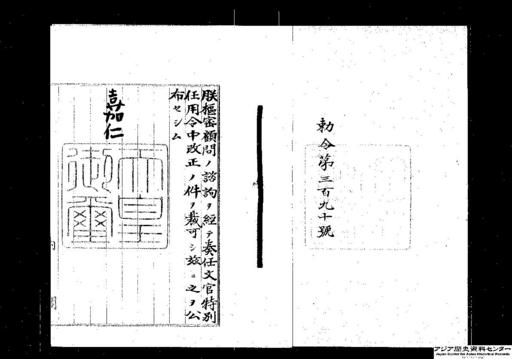 勅令第三百九十號
朕樞密顧問ノ諮詢ヲ經テ奏任文官特別
任用令中改正ノ件ヲ裁可シ茲ニ之ヲ公
布セシム
嘉仁
天皇
御璽
アジア歴史資料センター
Japan Center for Asian Historical Records